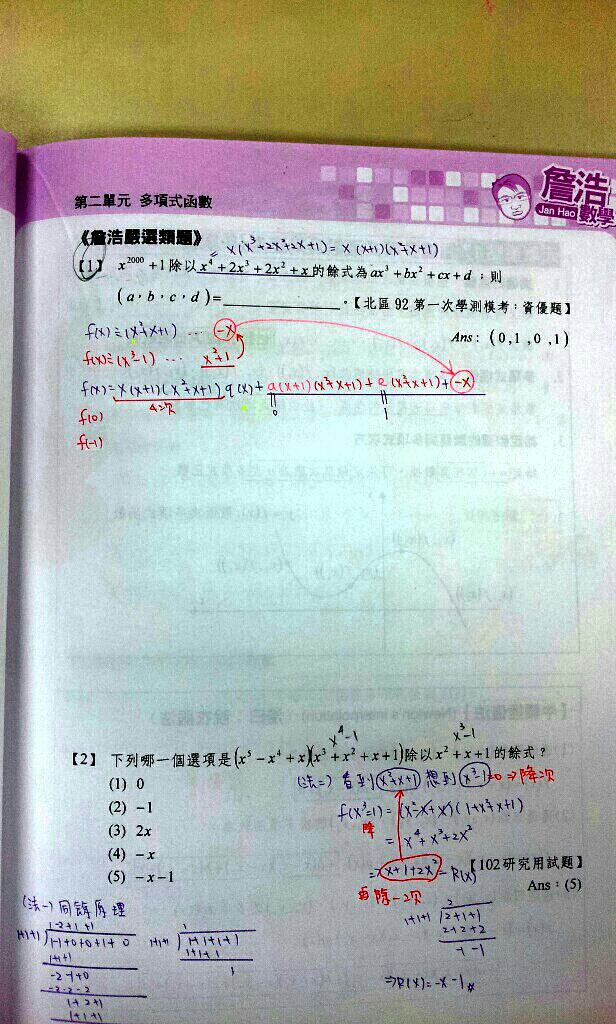 第二單元 多項式函數
詹浩
Jan Hao 數學
《詹浩嚴選類題》
= x(x³+2x²+2x+1) = x(x+1)(x²+x+1)
【1】 x²⁰⁰⁰+1除以x⁴+2x³+2x²+x的餘式為ax³+bx²+cx+d,則
(a,b,c,d)=__________。【北區92第一次學測模考:資優題】
Ans:(0,1,0,1)
f(x)÷(x²+x+1) ... -x
f(x)÷(x³-1) ... x²+1
f(x)=x(x+1)(x²+x+1)q(x)+a(x+1)(x²+x+1)+e(x²+x+1)+-x
4次
0
1
f(0)
f(-1)
x⁴-1
x³-1
【2】 下列哪一個選項是(x⁵-x⁴+x)(x³+x²+x+1)除以x²+x+1的餘式?
(1) 0
(2) -1
(3) 2x
(4) -x
(5) -x-1
(法二) 看到x²+x+1 想到x³-1=0⇒降次
f(x³=1)=(x²-x+x)(1+x²+x+1)
降
= x⁴+x³+2x²
⇒x+1+2x²=R(x)
再除一次
【102研究用試題】
Ans:(5)
2
1+1+1 2+1+1
2+2+2
-1-1
⇒R(x)=-x-1
(法一)同餘原理
1-2+1+1
1+1+1 1-1+0+0+1+0
1+1+1
-2-1+0
-2-2-2
1+2+1
1+1+1
1
1+1+1 1+1+1+1
1+1+1
1